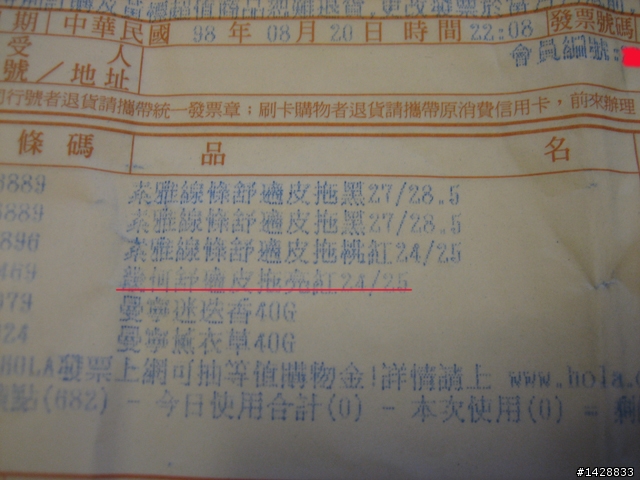 超值商品恕難退貨,更改發票於當
期 中華民國 98 年 08 月 20 日 時間 22:08 發票號碼
受 人
號/地址
會員編號:
行號者退貨請攜帶統一發票章;刷卡購物者退貨請攜帶原消費信用卡,前來辦理
條 碼 品 名
8889 素雅線條舒適皮拖黑27/28.5
8889 素雅線條舒適皮拖黑27/28.5
8896 素雅線條舒適皮拖桃紅24/25
469 幾何舒適皮拖亮紅24/25
979 曼寧迷迭香40G
924 曼寧薰衣草40G
HOLA發票上網可抽等值購物金!詳情請上 www.hola.
點(682) - 今日使用合計(0) - 本次使用(0) = 剩
#1428833